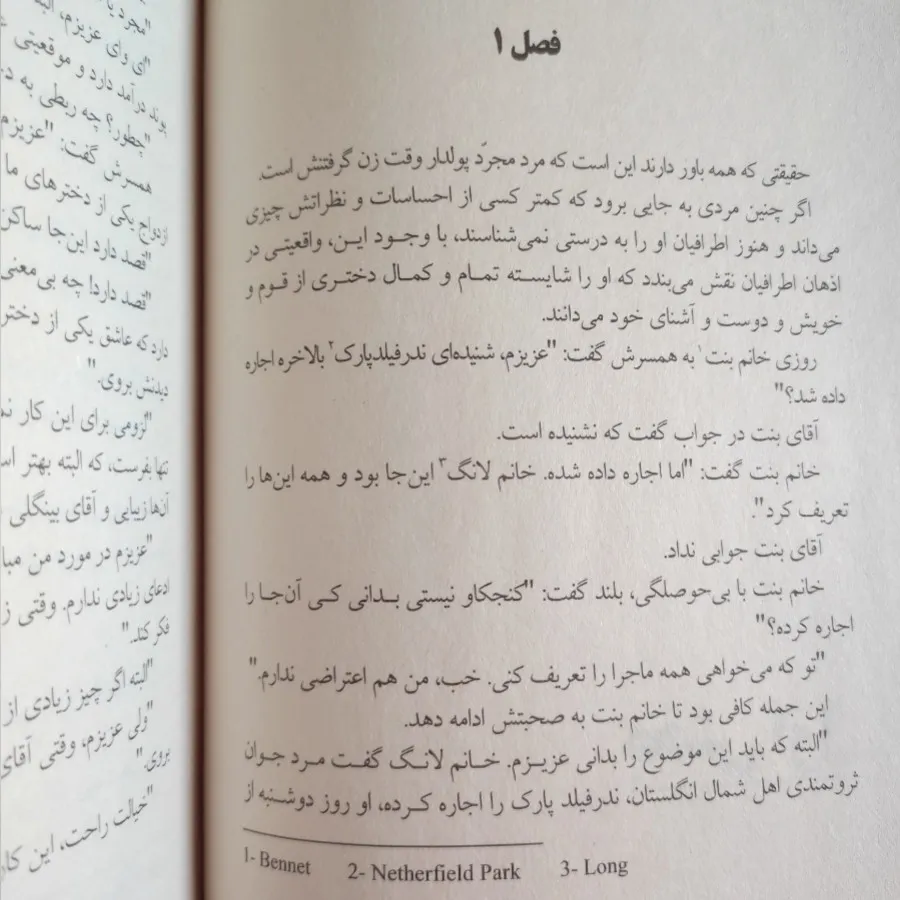 فصل ۱
حقیقتی که همه باور دارند این است که مرد مجرّد پولدار وقت زن گرفتنش است.
اگر چنین مردی به جایی برود که کمتر کسی از احساسات و نظراتش چیزی
می‌داند و هنوز اطرافیان او را به درستی نمی‌شناسند، با وجود این، واقعیتی در
اذهان اطرافیان نقش می‌بندد که او را شایسته تمام و کمال دختری از قوم و
خویش و دوست و آشنای خود می‌دانند.
روزی خانم بنت۱ به همسرش گفت: "عزیزم، شنیده‌ای ندرفیلدپارک۲ بالاخره اجاره
داده شد؟"
آقای بنت در جواب گفت که نشنیده است.
خانم بنت گفت: "اما اجاره داده شده. خانم لانگ۳ این‌جا بود و همه این‌ها را
تعریف کرد".
آقای بنت جوابی نداد.
خانم بنت با بی‌حوصلگی، بلند گفت: "کنجکاو نیستی بدانی کی آن‌جا را
اجاره کرده؟"
"تو که می‌خواهی همه ماجرا را تعریف کنی. خب، من هم اعتراضی ندارم."
این جمله کافی بود تا خانم بنت به صحبتش ادامه دهد.
"البته که باید این موضوع را بدانی عزیزم. خانم لانگ گفت مرد جوان
ثروتمندی اهل شمال انگلستان، ندرفیلد پارک را اجاره کرده، او روز دوشنبه از
1- Bennet 2- Netherfield Park 3- Long
"مجرد
"ای وای عزیزم، البته
پوند درآمد دارد و موقعیتی
"چطور؟ چه ربطی به
همسرش گفت: "عزیزم
ازدواج یکی از دخترهای ما
"قصد دارد این‌جا ساکن
"قصد دارد! چه بی‌معنی
دارد که عاشق یکی از دختر
دیدنش بروی."
"لزومی برای این کار
تنها بفرست، که البته بهتر
آن‌ها زیبایی و آقای بینگلی
"عزیزم در مورد من
ادعای زیادی ندارم. وقتی
فکر کند."
"البته اگر چیز زیادی از
"ولی عزیزم، وقتی آقای
بروی."
"خیالت راحت، این